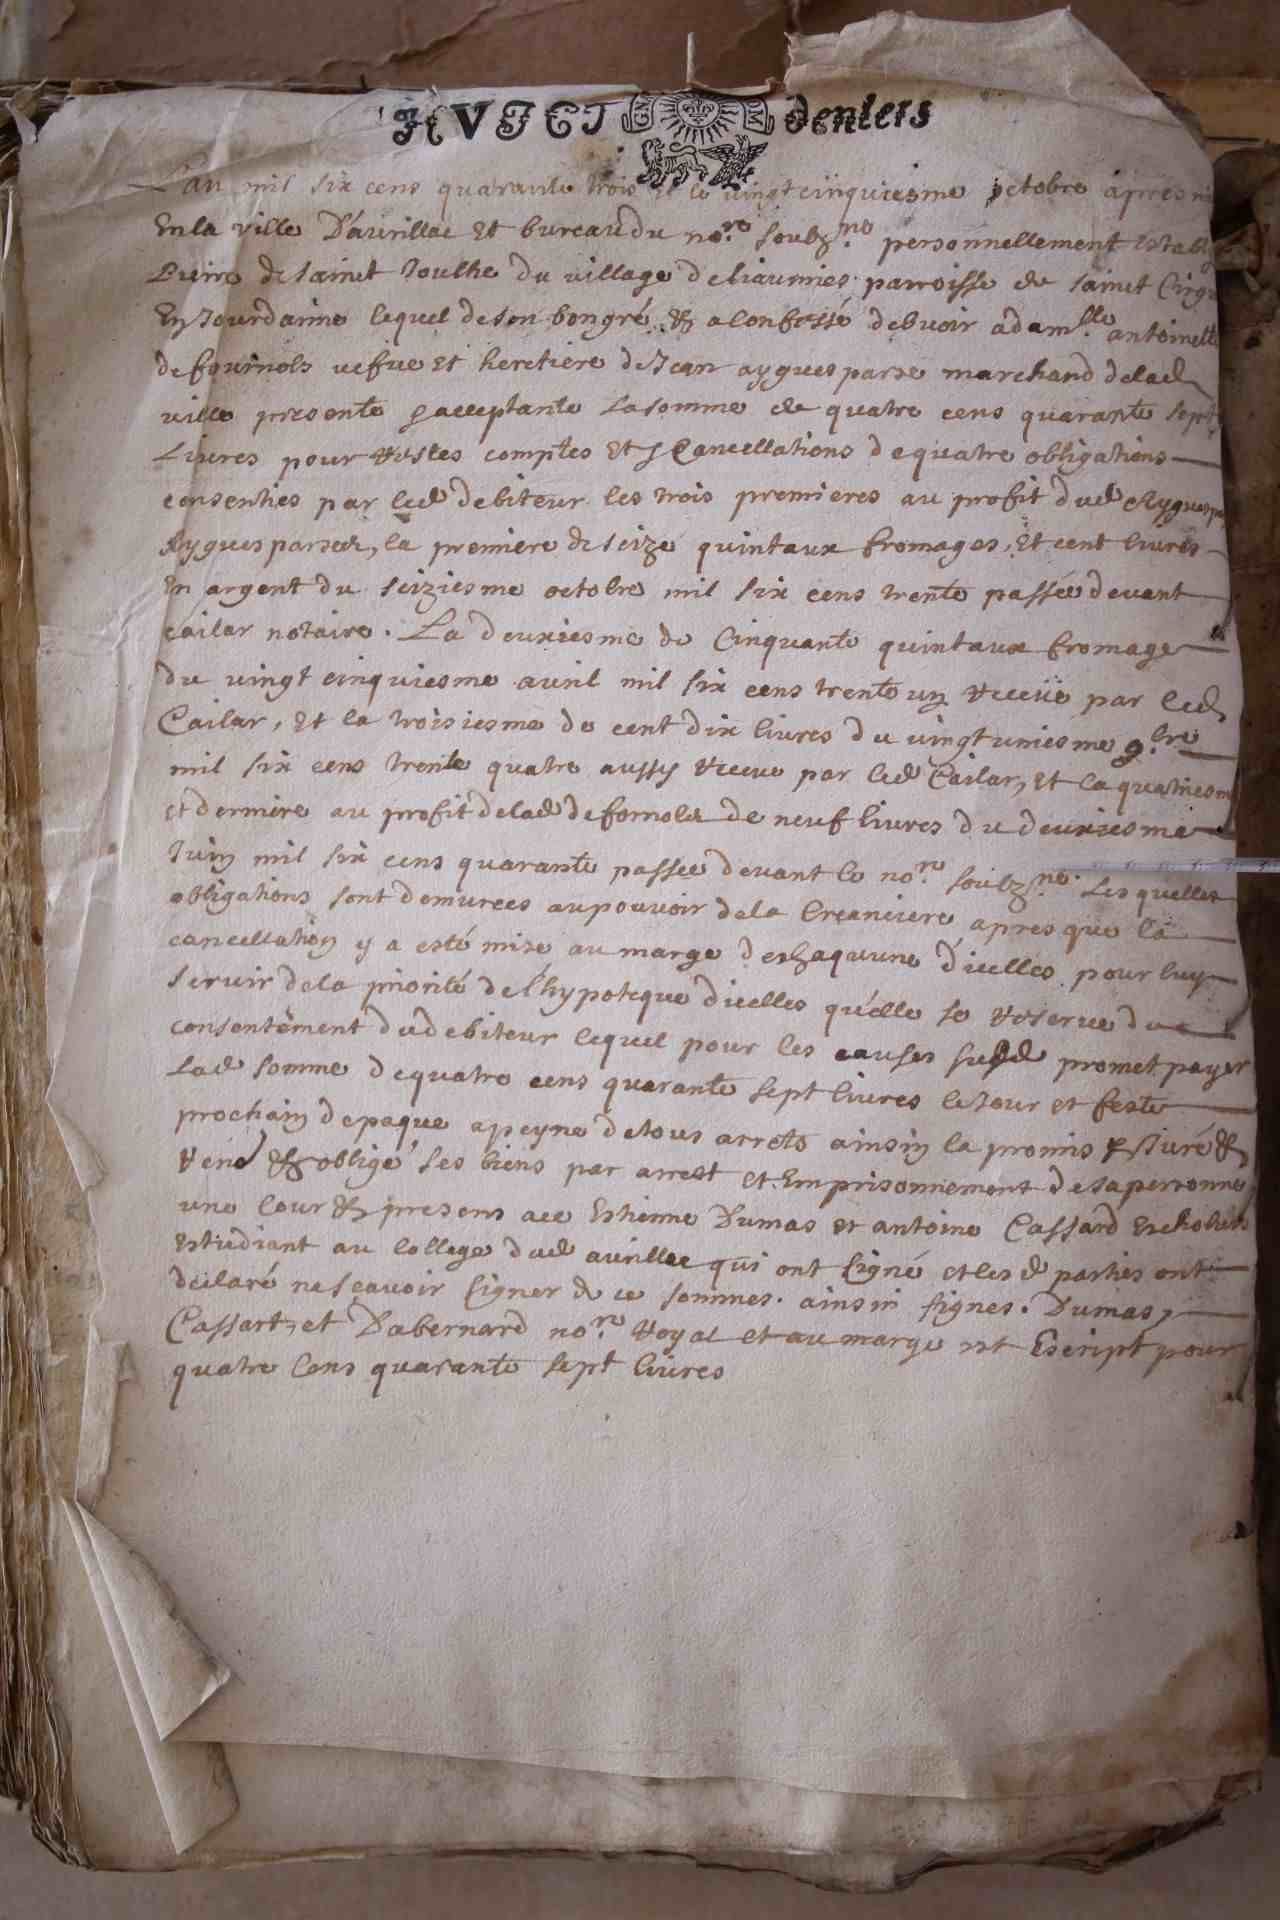 HVICT GN OM deniers
L'an mil six cens quarante trois et le vingt cinquiesme octobre apres
En la ville D'aurillac Et bureau du no.re soubz.ne personnellement Estably
Pierre de sainct Joulhe du village de liaumies parroisse de sainct Cirgu
En Jourdanne lequel de son bon gré & a Confessé debvoir a dam.lle antoinette
de fournols vefue et heretiere de Jean aygues parse marchand de lad
ville presente & acceptante La somme de quatre cens quarante sept
Livres pour restes comptes Et Cancellations de quatre obligations
consenties par led debiteur les trois premieres au profit dud Aygues
Aygues parses, la premiere de seize quintaux fromages, Et cent livres
En argent du seiziesme octobre mil six cens trente passée devant
cailar notaire. La deuxiesme de Cinquante quintaux fromage
du vingt cinquiesme avril mil six cens trente un receüe par led
Cailar, Et la troisiesme de cent dix livres du vingt uniesme 9.bre
mil six cens trente quatre aussy receue par led Cailar, Et la quatriesme
et derniere au profit de lad de fornoles de neuf livres du deuxiesme
Juin mil six cens quarante passee devant le no.re soubz.ne. Les quelles
obligations sont demurees au pouvoir de la Creanciere apres que la
cancellation y a esté mise au marge de chaquune d'icelles pour luy
servir de la priorité de l'hypoteque d'icelles qu'elle se reserve du
consentement du debiteur lequel pour les causes susd promet payer
Lad somme de quatre cens quarante sept livres le Jour et feste
prochain de paque a peyne de tous arrets ainsin la promis & Juré &
Rend & obligé ses biens par arrest et Emprisonnement de sa personne
une Cour & presens ace Estienne Dumas et antoine Cassard Escholiers
Estudiant au College dud aurillac qui ont signé et les d parties ont
declaré ne scavoir signer de ce sommes. ainsin signes. Dumas,
Cassart, et Dabernard no.re Royal et au marge est Escript pour
quatre Cens quarante sept livres